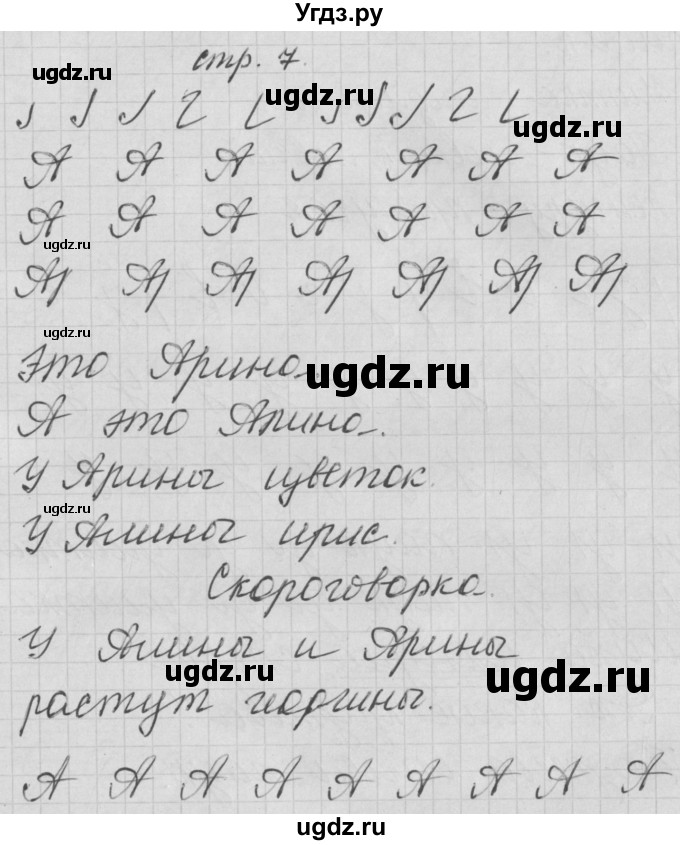 Угдз.ру
стр. 7.
ugdz.ru
ugdz.ru
ugdz.ru
А А А А А А А
ugdz.ru
А А А А А А А
ugdz.ru
Ар Ар Ар Ар Ар Ар Ар
ugdz.ru
Это Арина.
ugdz.ru
А это Алина.
У Арины цветок.
ugdz.ru
У Алины ирис.
Скороговорка.
У Алины и Арины
ugdz.ru
ugdz.ru
растут георгины.
А А А А А А А А А
ugdz.ru